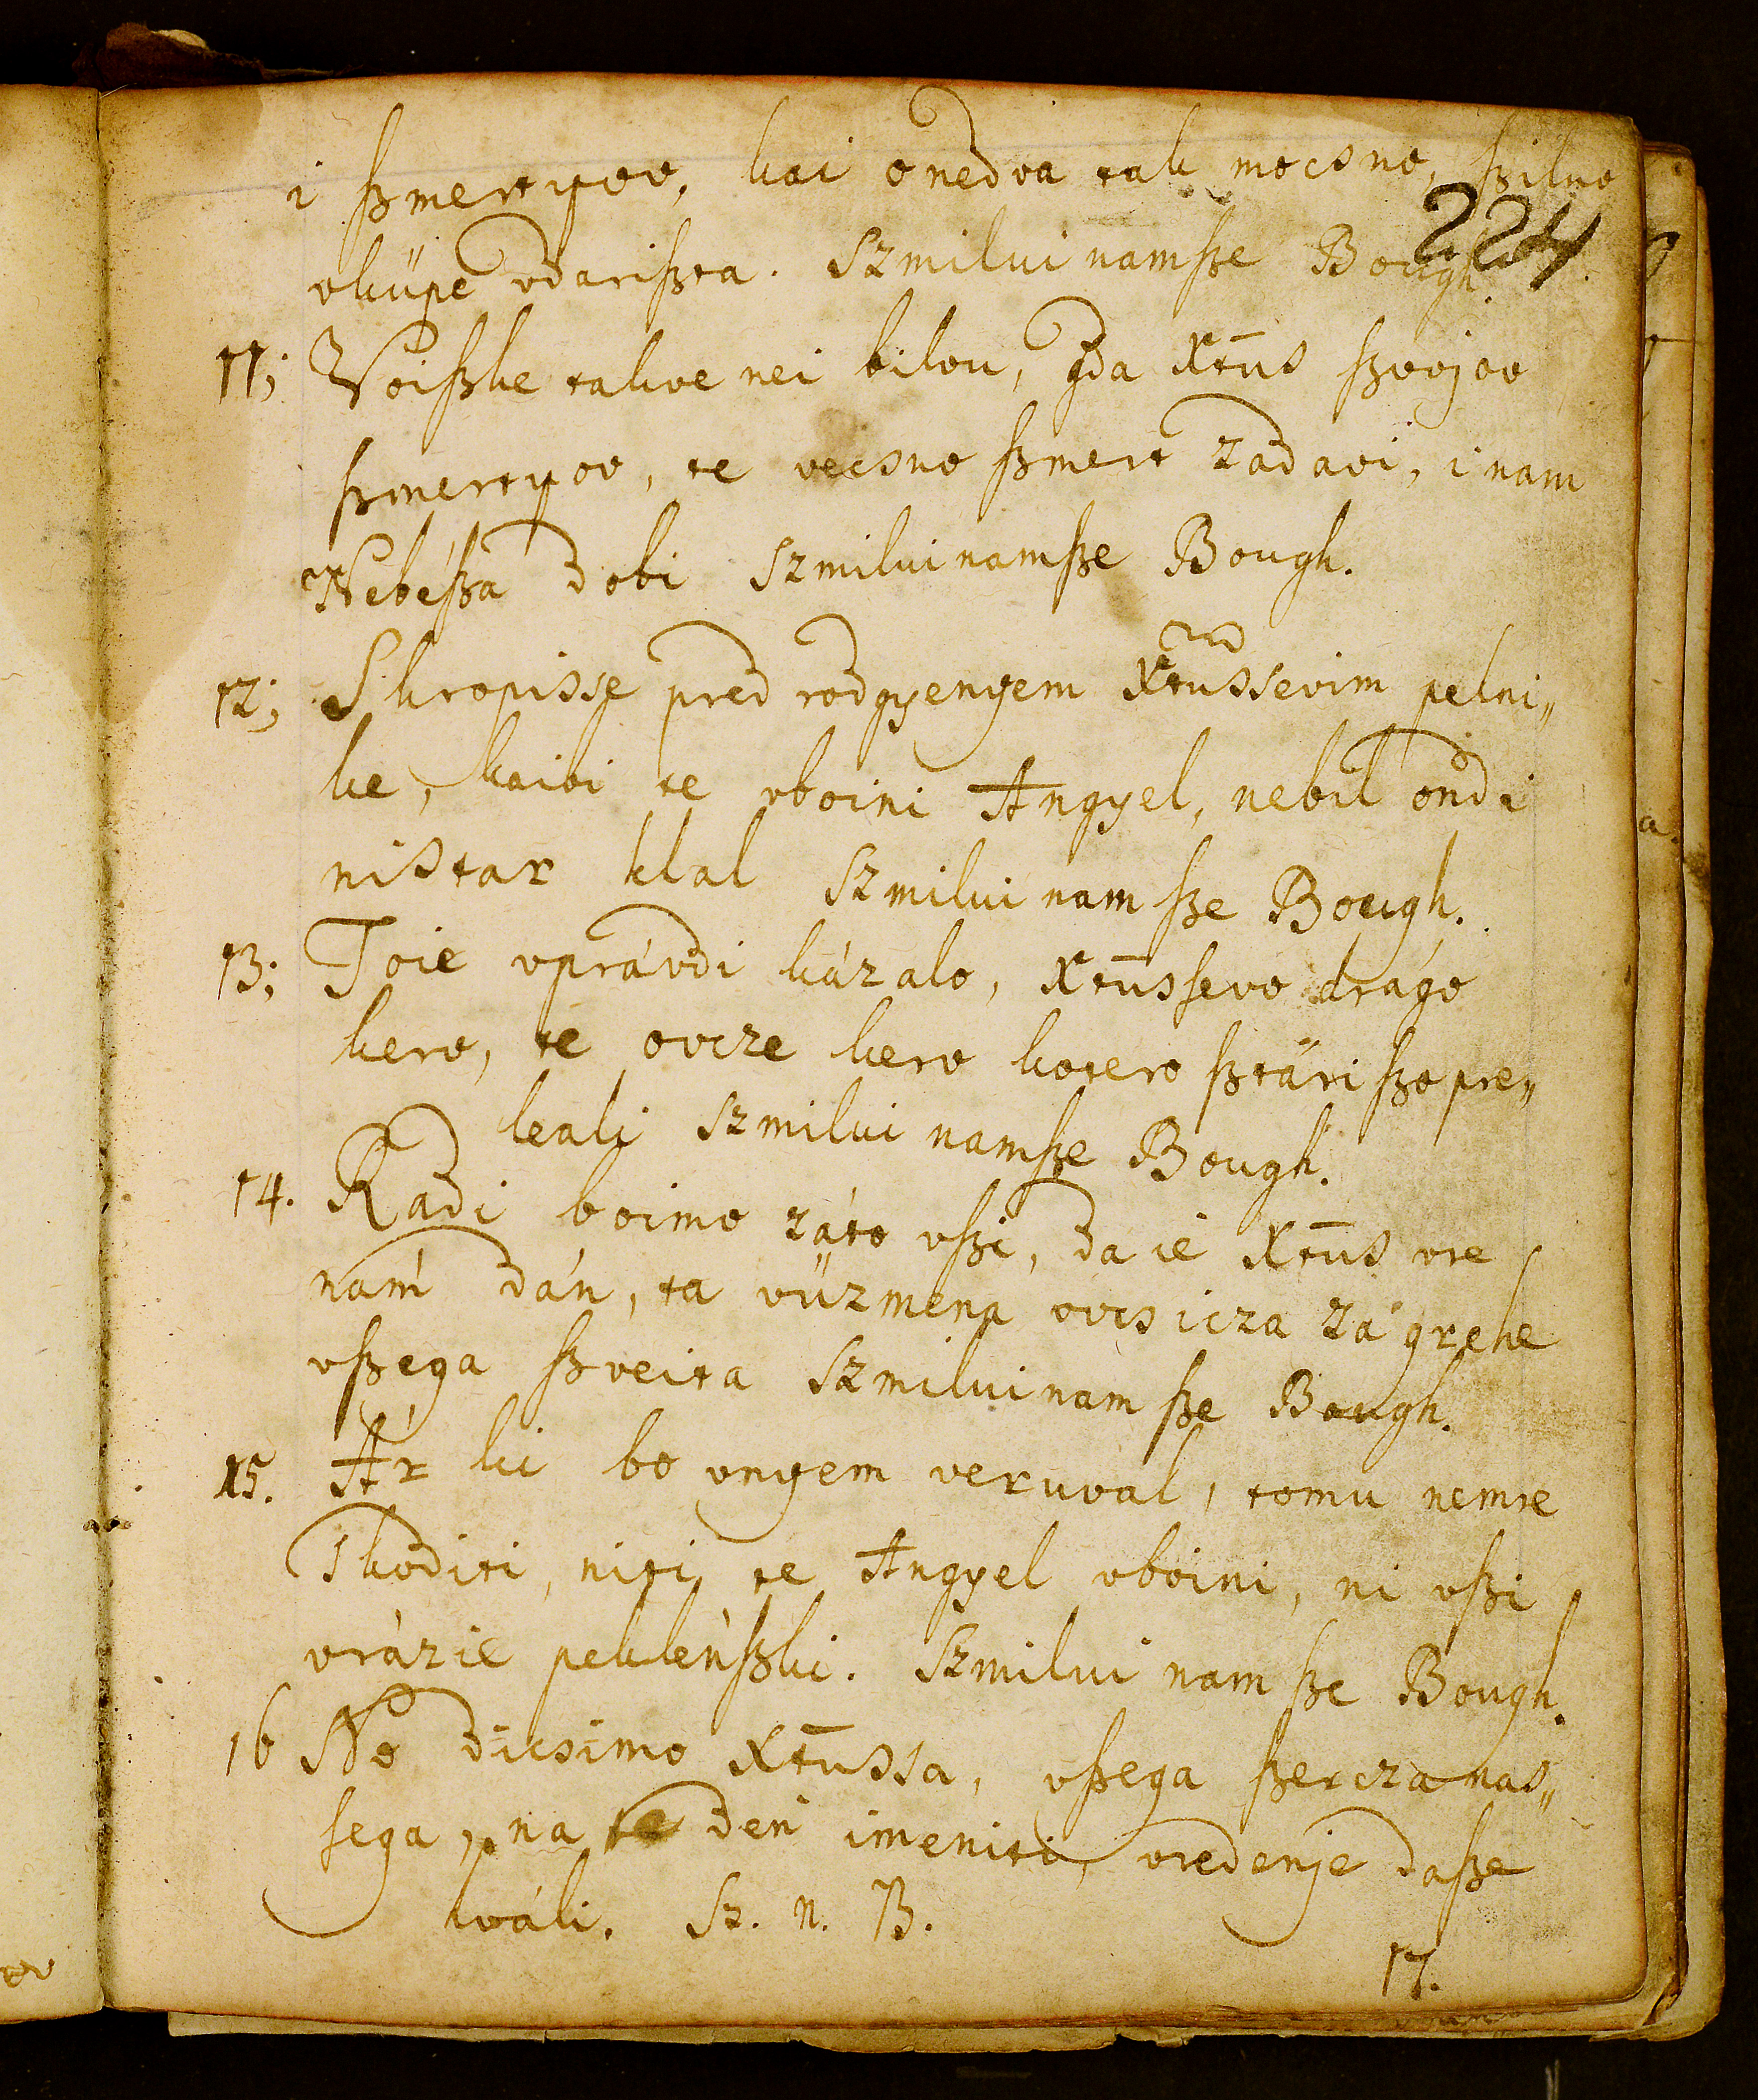 i ſzmertyov, kai onedva tak mocsno, ſzilno
224
vküpe vdariſzta. Szmilui namſze Bough.
11; Voiſzke takve nei bilou, gda Xtus ſzvojov
ſzmertyov, te vecsno ſzmert zadavi, i nam
Nebéſza dobi Szmilui namſze Bough.
12; Skropisse pred rodgyenyem Xtussevim pelni„
ke, kaibi te vboini Angyel, nebil ondi
nistar klal Szmilui nam ſze Bough.
13; Toie vprávdi kázalo, Xtusſevo drágo
kerv, te ovcze kerv kotero ſztári ſzo pre„
leali Szmilui namſze Bough.
14. Radi boimo záto vſzi, da ie Xtus vre
nam dán, ta vüzmena ovcsicza zá grehe
vſzega ſzveita Szmilui nam ſze Bough.
15. Ár ki bo vnyem veruval, tomu nemre
skoditi, niti te Angyel vboini, ni vſzi
vrázie peklénſzki. Szmilui nam ſze Bough.
16 No dicsimo Xtussa, vſzega ſzercza nas„
sega, na te den imeniti, vredenje daſze
hváli. Sz. n. B.
17.